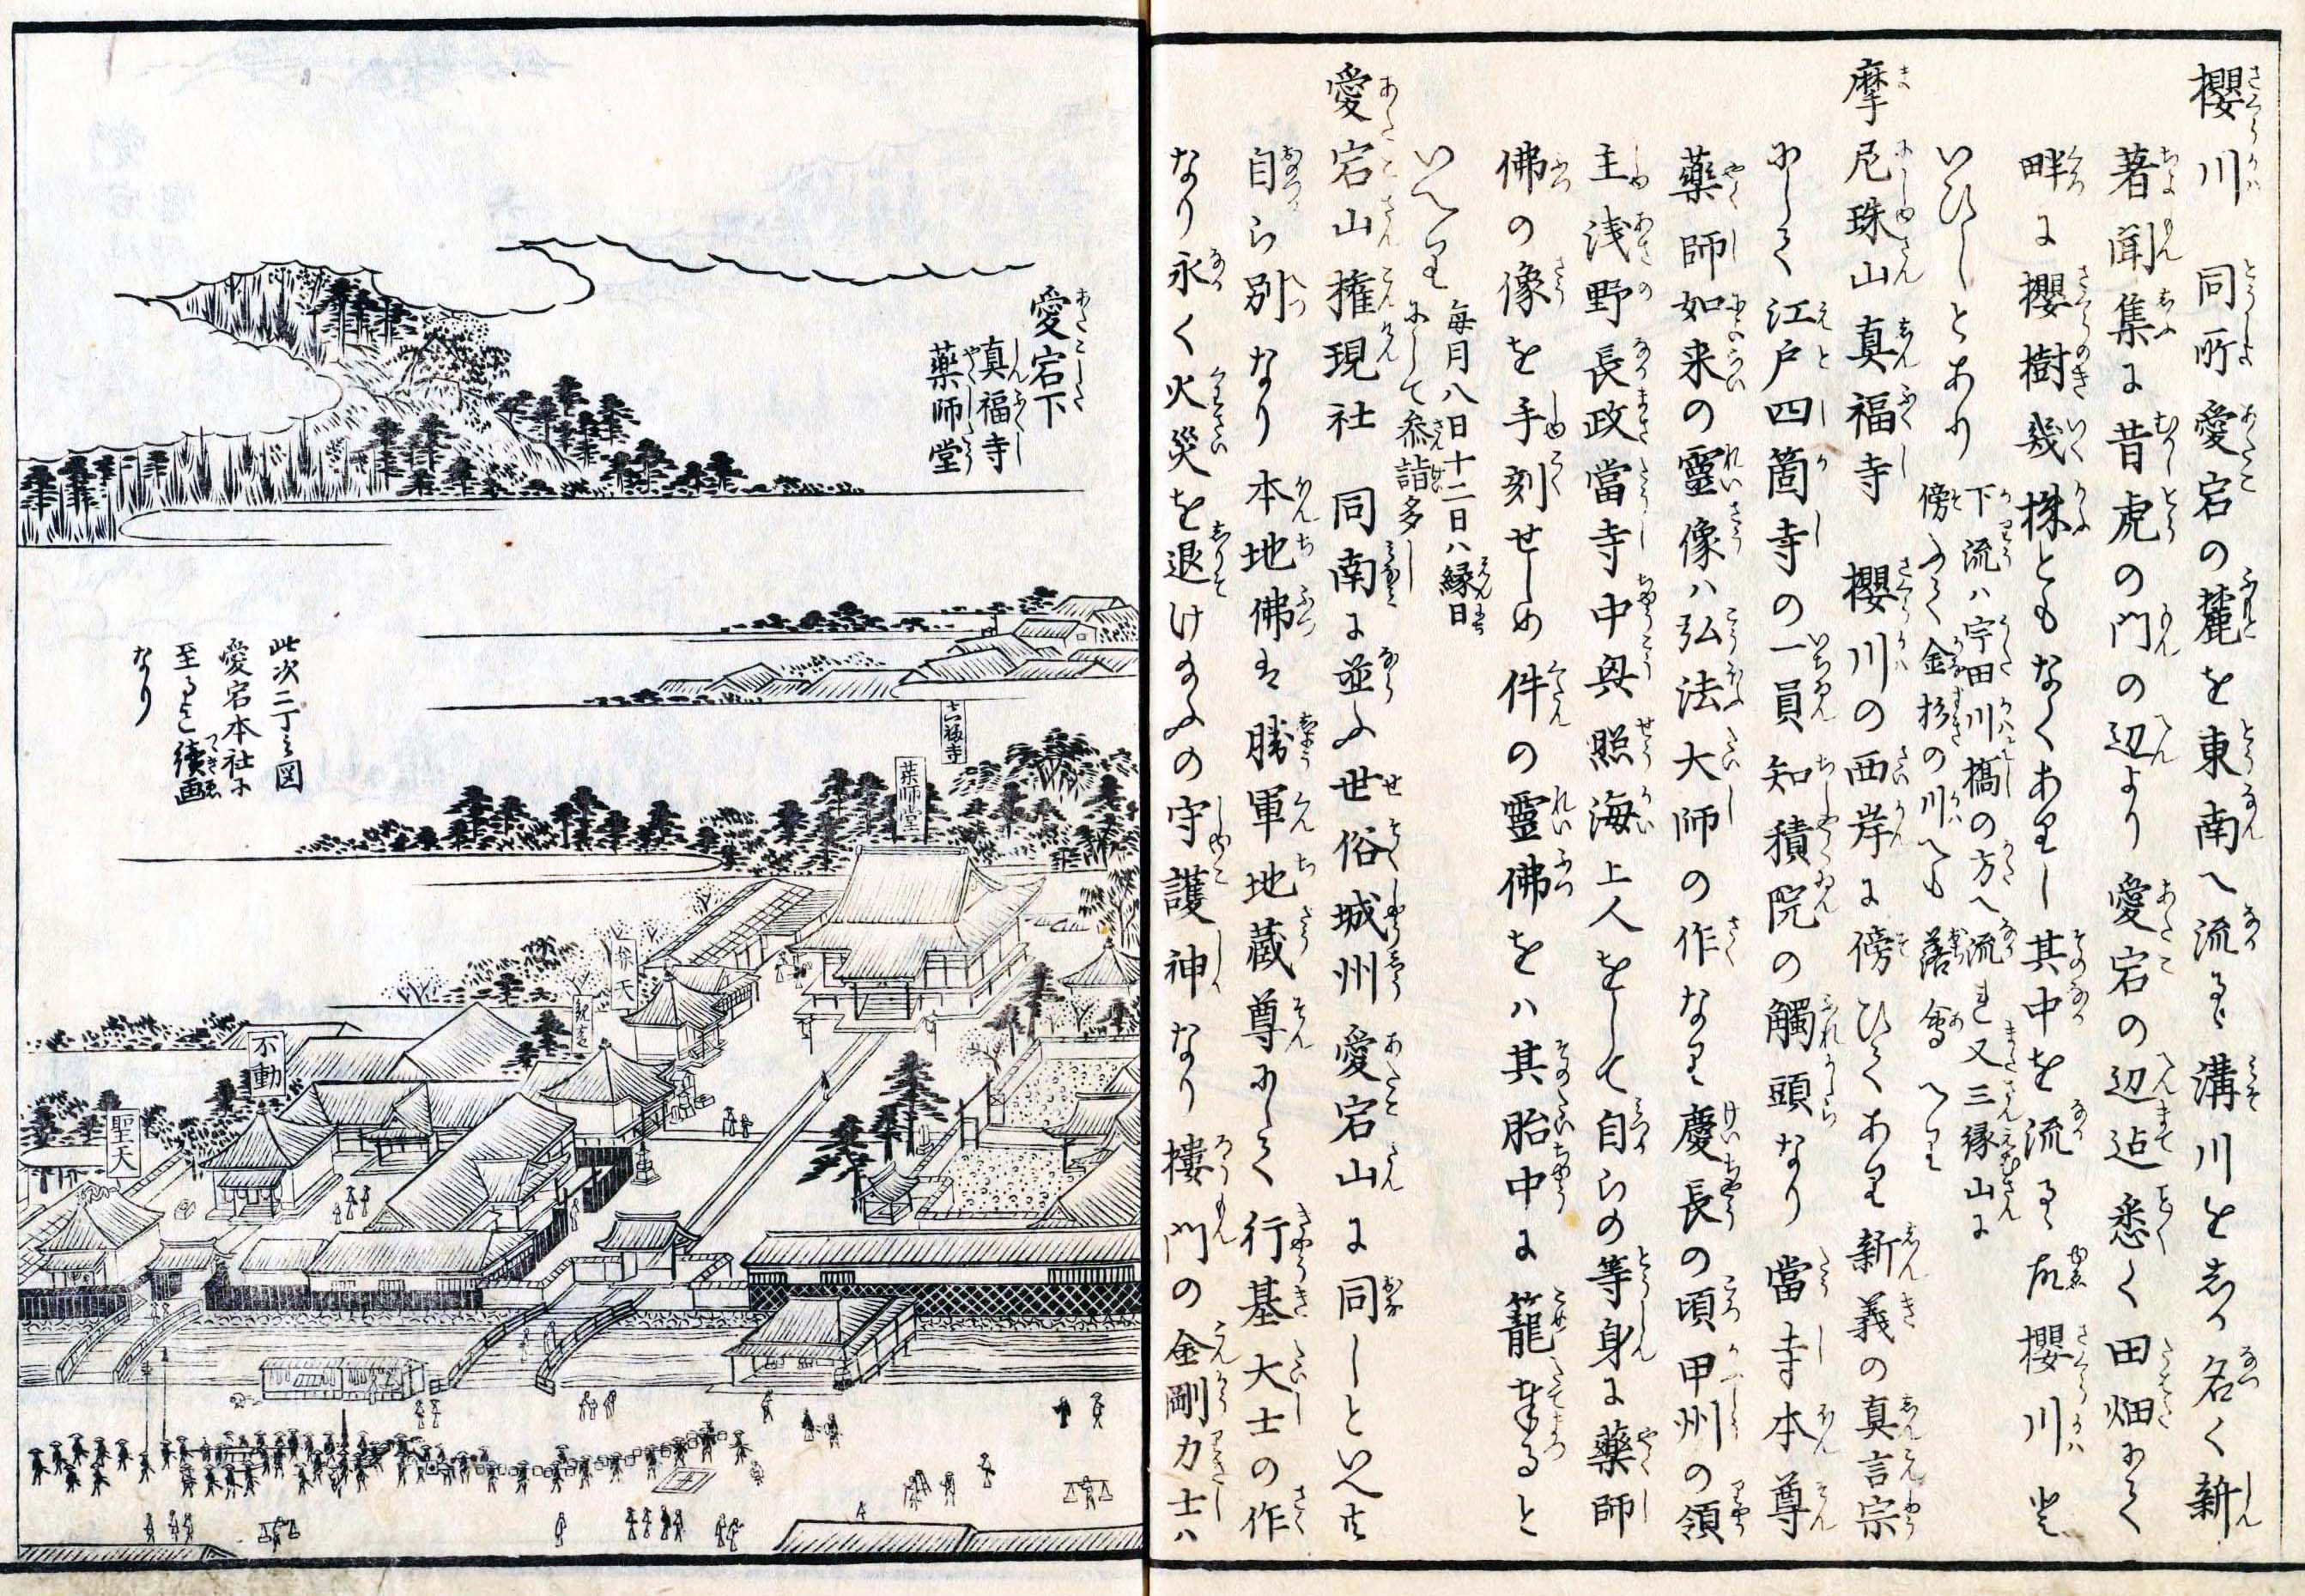 櫻川 同所愛宕の麓を東南へ流るゝ溝川をしか名く新
著聞集に昔虎の門の辺より愛宕の辺迠悉く田畑にて
畔に櫻樹幾株ともなくありし其中を流るゝ故櫻川と
いひしとあり
下流ハ宇田川橋の方へ流れ又三縁山に
傍ふて金杉の川へも落會へり
摩尼珠山真福寺 櫻川の西岸に傍ひてあり新義の真言宗
にして江戸四箇寺の一員知積院の觸頭なり當寺本尊
薬師如来の靈像ハ弘法大師の作なり慶長の頃甲州の領
主浅野長政當寺中興照海上人をして自らの等身に薬師
佛の像を手刻せしめ件の靈佛をハ其胎中に籠奉ると
いへり
毎月八日十二日ハ縁日
にして参詣多し
愛宕山權現社 同南に並ふ世俗城州愛宕山に同しといへ共
自ら別なり本地佛は勝軍地蔵尊にして行基大士の作
なり永く火災を退け給ふの守護神なり樓門の金剛力士ハ
愛宕下
真福寺
薬師堂
此次三丁之図
愛宕本社に
至る迄續画
なり
真福寺
薬師堂
弁天
不動
聖天